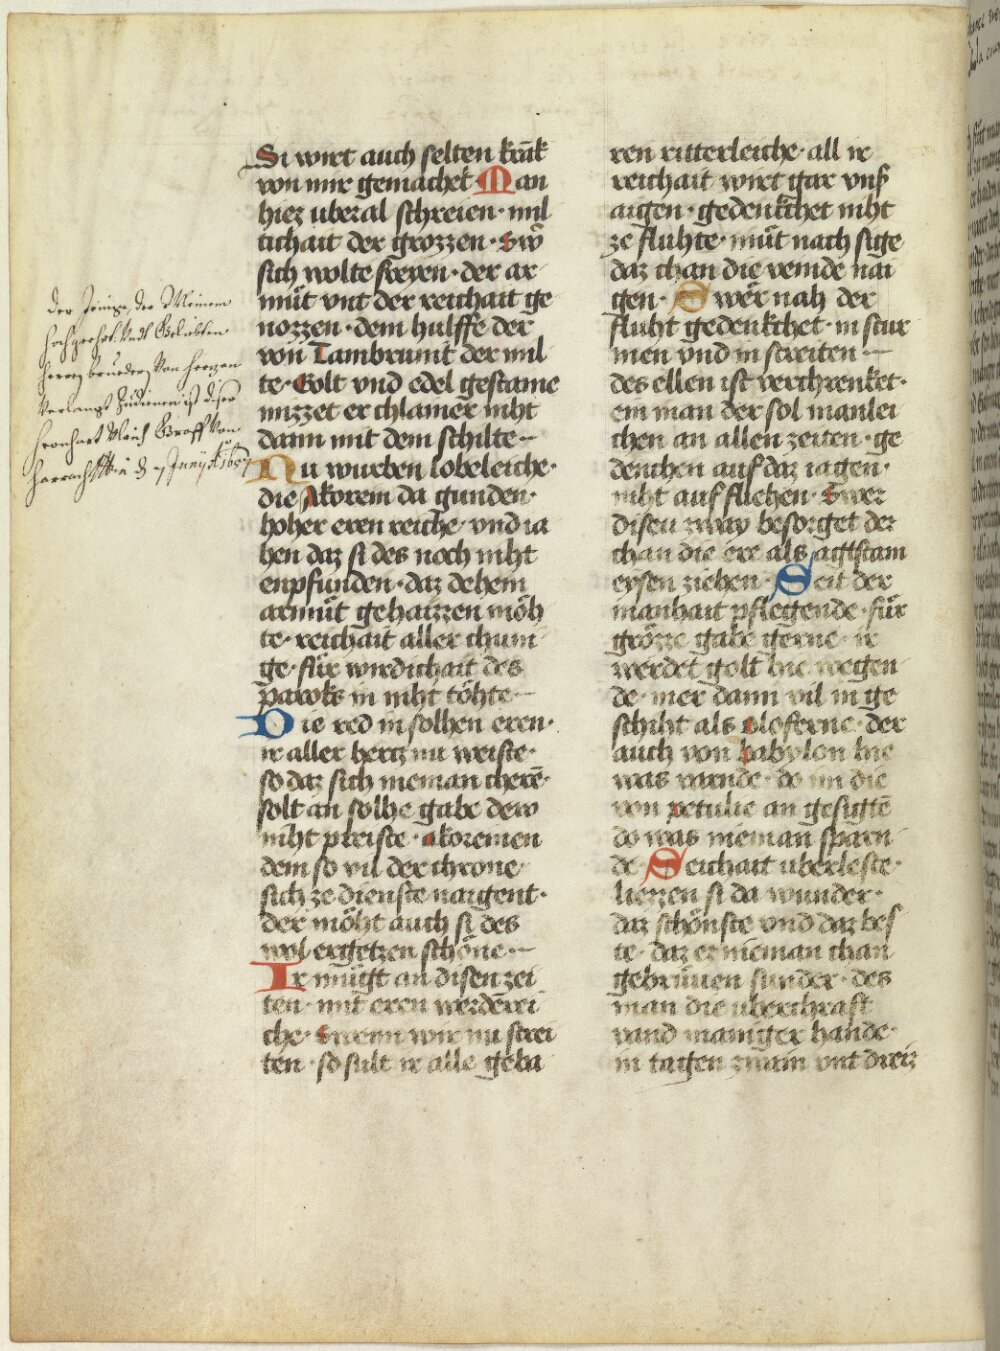 Si wirt auch selten krãk
von mir gemachet Man
hiez uberal schreien · mil
tichait der grozzen · Swõ
sich wolte freyen · der ar
můt vnt der reichait ge
nozzen · dem hulffe der
von Tambrunit der mil
te · Golt vnd edel gestaine
mizzet er chlainer niht
dann mit dem schilte ·
Nu wurben lobeleiche ·
die Akorein da gunden ·
hoher eren reiche · vnd ia
hen daz si des noch niht
enpfunden · daz dehein
armůt gehaizzen möh
te · reichait aller chuni
ge · für wirdichait des
paroks in niht töhte ·
Die red in solhen eren ·
ir aller hertz nu weiste ·
so daz sich nieman cherē ·
solt an solhe gabe dew
niht preiste · akoreinen
dem so vil der chrone
sich ze dienste naigent ·
der möht auch si des
wol ergetzen schöne ·
Ir mügt an disen zei
ten · mit eren werdē rei
che · Swenn wir nu strei
ten · so sult ir alle geba
ren ritterleiche · all ir
reichait wirt gar vnß
aigen · gedenkchet niht
ze fluhte · můt nach sige
daz chan die veinde nai
gen · Swer nah der
fluht gedenkchet · in stur
men vnd in streiten ·
des ellen ist verchrenket ·
ein man der sol manlei
chen an allen zeiten · ge
denchen auf daz iagen ·
niht auf fliehen · Swer
diseu zway besorget der
chan die ere als agtstain
eysen ziehen · Seit der
manhait pflegende · für
grözze gabe gerne · ir
werdet golt hie wegen
de · mer dann vil in ge
schiht als oloferne · der
auch von babylon hie
was varnde · do im die
von petulie an gesigtē
do was nieman sparn
de · Reichait uberleste ·
liezzen si da wunder ·
daz schönste vnd daz bes
te · daz ez nieman chan
gebrüuen sunder · des
man die uberchraft
vand maniger hande ·
in tagen zwain vnt dreiz